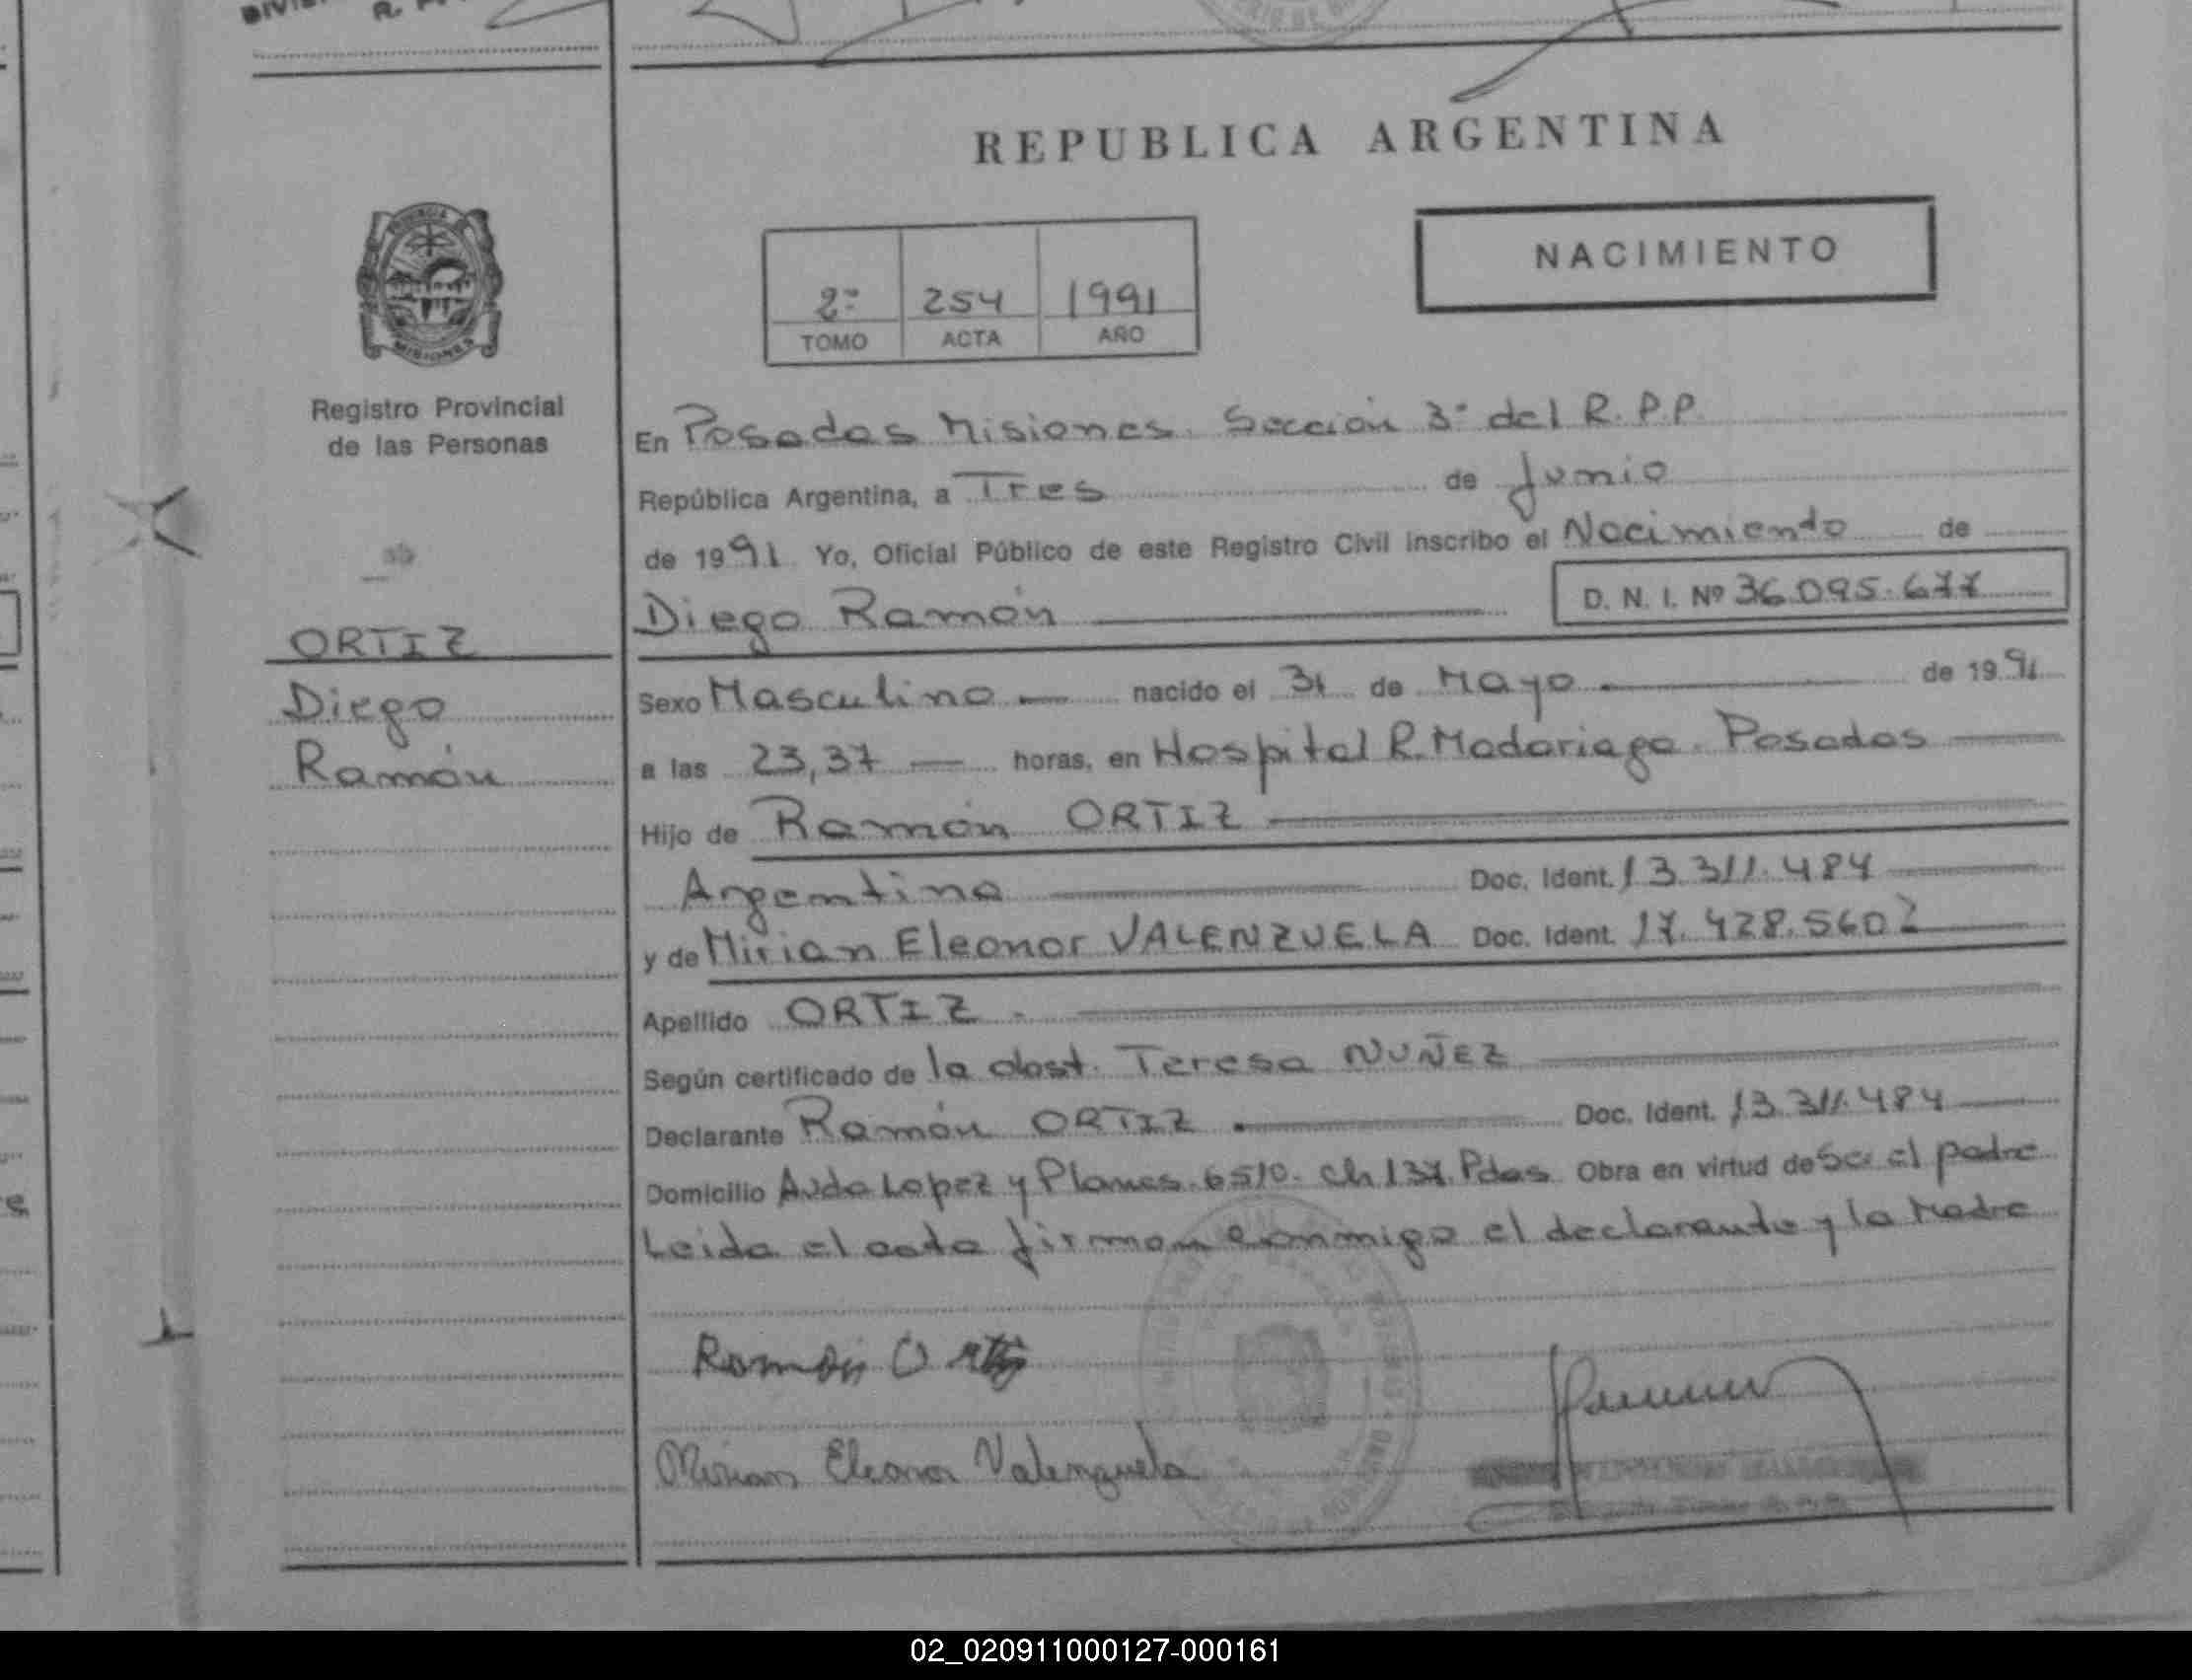 REPUBLICA ARGENTINA
NACIMIENTO
2º 254 1991
TOMO ACTA AÑO
PROVINCIA
MISIONES
Registro Provincial
de las Personas
ORTIZ
Diego
Ramón
En Posadas Misiones. Sección 3º del R.P.P.
República Argentina, a Tres de Junio
de 1991 Yo, Oficial Público de este Registro Civil inscribo el Nacimiento de
Diego Ramón D. N. I. Nº 36.095.677
Sexo Masculino nacido el 31 de Mayo de 1991
a las 23,37 horas, en Hospital R. Madariaga. Posadas
Hijo de Ramón ORTIZ
Argentino Doc. Ident. 13.311.484
y de Mirian Eleonor VALENZUELA Doc. Ident. 17.428.560
Apellido ORTIZ.
Según certificado de la obst. Teresa NUÑEZ
Declarante Ramón ORTIZ Doc. Ident. 13.311.484
Domicilio Avda Lopez y Planes. 6510. Ch 137. Pdas Obra en virtud de Ser el padre
Leida el acta firman conmigo el declarante y la Madre
Ramón Ortiz
Mirian Eleonor Valenzuela
02_020911000127-000161